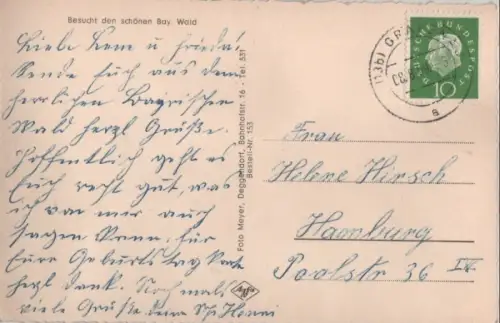 Besucht den schönen Bay. Wald
Liebe Lene u. Frieda!
Sende Euch aus dem
herrlichen Bayrischen
Wald herzl. Grüße.
Hoffentlich geht es
Euch recht gut, was
ich von mir auch
sagen kann. Für
Eure Geburtstagskarte
herzl. Dank. Nochmals
viele Grüße
Foto Meyer, Deggendorf, Bahnhofstr. 16 - Tel. 531
Bestell-Nr. 153
Agfa
(13b) GRA
DEUTSCHE BUNDESPOST
10
a
Frau
Helene Hirsch
Hamburg
Poolstr 36 IV.